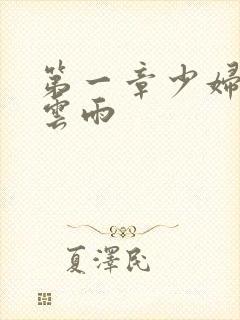 第一章少婦
雲雨
夏澤民